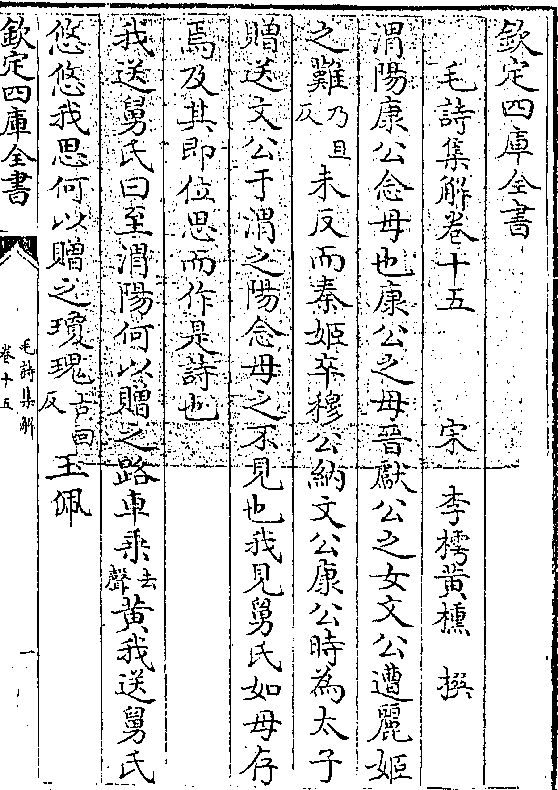 欽定四庫全書
毛詩集解卷十五　宋　李樗黃櫄　撰
渭陽康公念母也康公之母晉獻公之女文公遭麗姬
之難乃旦反未反而秦姬卒穆公納文公康公時為太子
贈送文公于渭之陽念母之不見也我見舅氏如母存
焉及其即位思而作是詩也
我送舅氏曰至渭陽何以贈之路車乗去聲黃我送舅氏
悠悠我思何以贈之瓊瑰古回反玉佩
欽定四庫全書
毛詩集解
卷十五
一